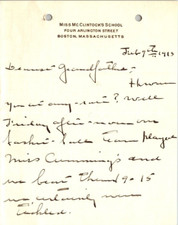 MISS MCCLINTOCK'S SCHOOL
FOUR ARLINGTON STREET
BOSTON, MASSACHUSETTS
Feb 7th 1923
Dearest Grandfather,
you any-way? Well
Friday after-noon our
basket-ball team played
Miss Cummings's and
we beat them 90-15
we certainly were
tickled.